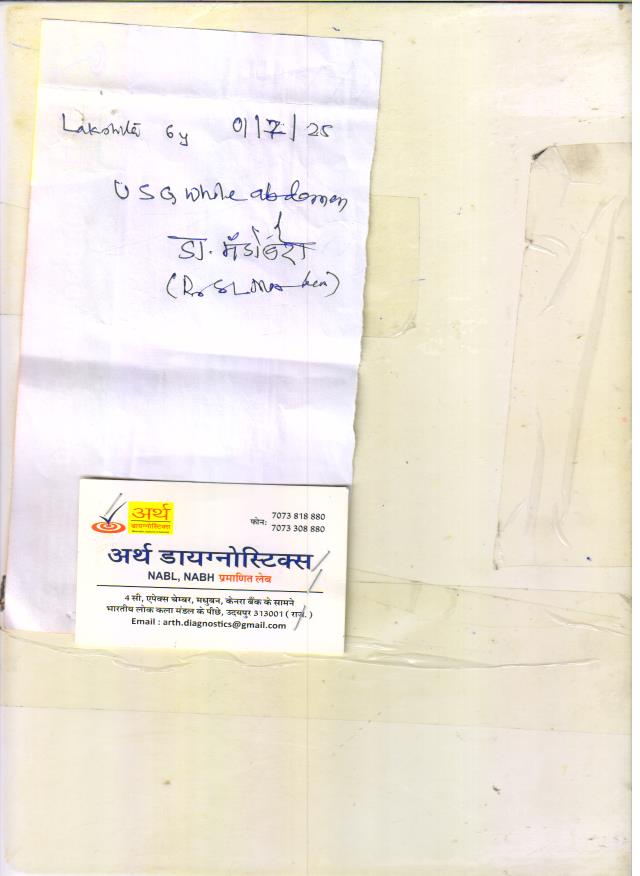 Lakshita 6y 01/7/25
USG whole abdomen
डा.
(Dr
अर्थ
डायग्नोस्टिक्स
फोन: 7073 818 880
7073 308 880
अर्थ डायग्नोस्टिक्स
NABL, NABH प्रमाणित लेब
4 सी, एपेक्स चेम्बर, मधुबन, केनरा बैंक के सामने
भारतीय लोक कला मंडल के पीछे, उदयपुर 313001 ( राज. )
Email : arth.diagnostics@gmail.com